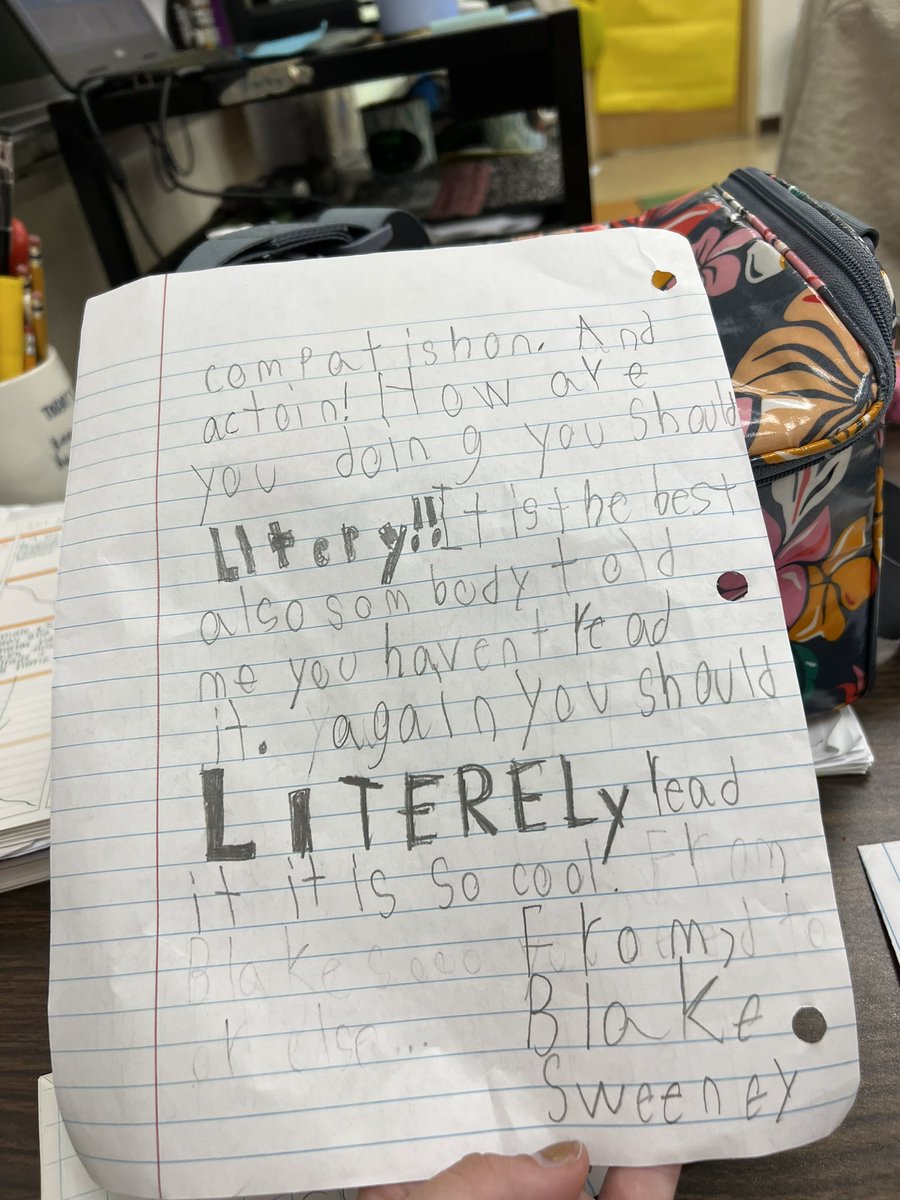 compatishon. And
actoin! How are
you doing you should
LItery!!! It is the best
also som body told
me you havent read
it. again you should
LITERELy read
it it is so cool. From
From,
Blake sooo
Blake
or else...
Sweeney